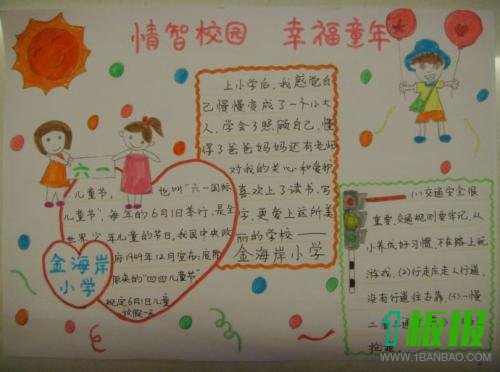 情智校园 幸福童年
上小学后,我感觉自
己慢慢变成了一个小大
人,学会了照顾自己,懂
得了爸爸妈妈还有老师
对我的关心和爱护
喜欢上了读书,写
字,更爱上这所美
丽的学校——
金海岸小学
六一
儿童节, 也叫"六一国际
儿童节",每年的6月1日举行,是全
世界少年儿童的节日,我国中央政
府1949年12月宣布:废除
原来的"四四儿童节"
规定6月1日儿童
放假一天
金海岸
小学
(1)交通安全很
重要,交通规则要牢记,从
小养成好习惯,不在路上玩
游戏,(2)行走应走人行道,
没有行道往右靠,(3)一慢
二
1板报
WWW.1BANBAO.COM